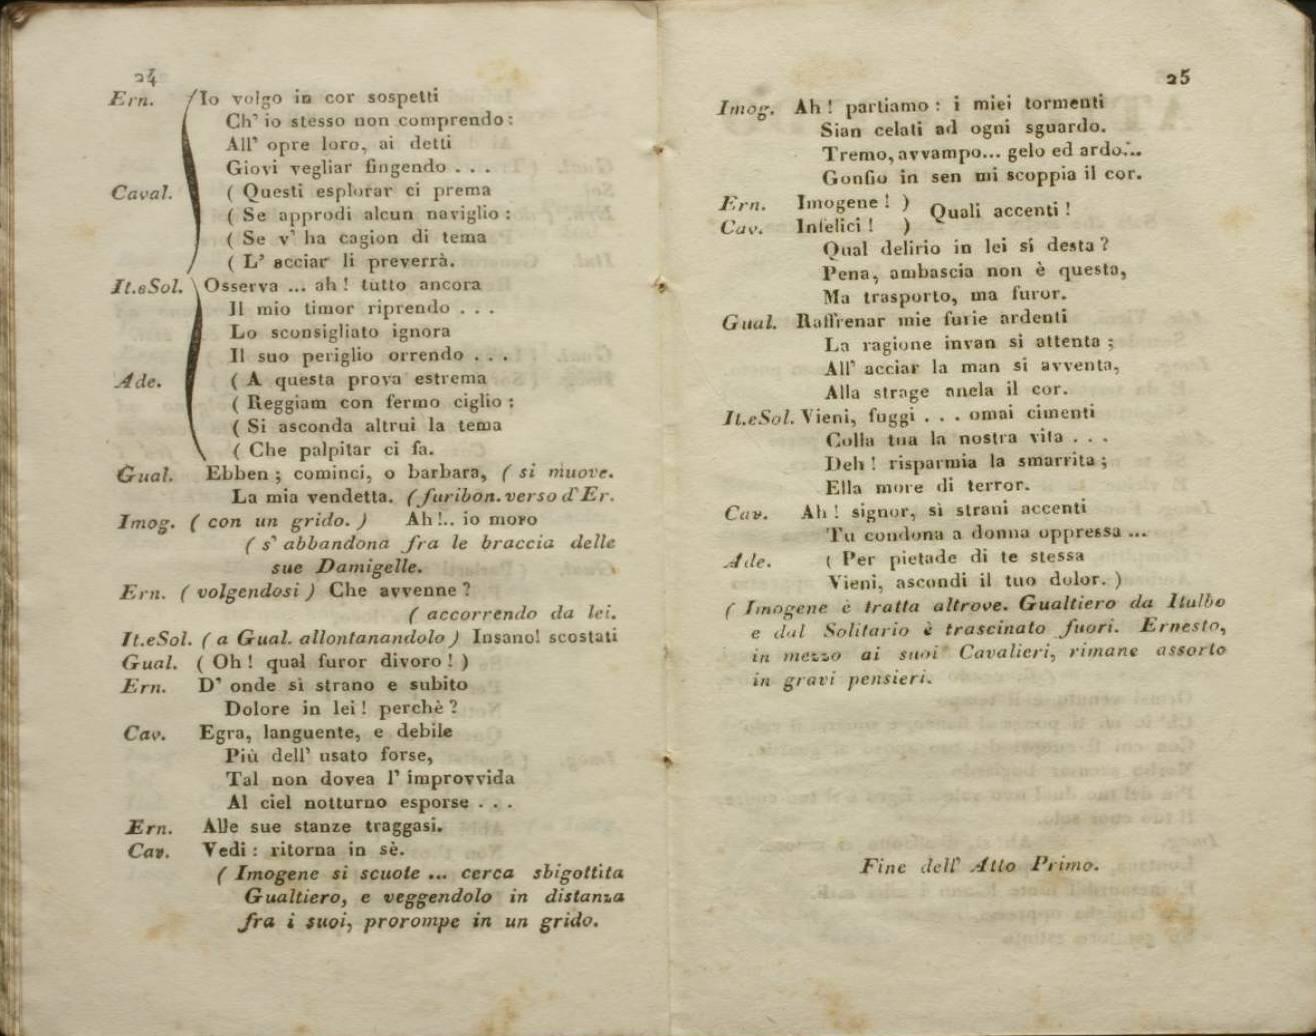 24
Ern. Io volgo in cor sospetti
Ch' io stesso non comprendo:
All' opre loro, ai detti
Giovi vegliar fingendo . . .
Caval. ( Questi esplorar ci prema
( Se approdi alcun naviglio :
( Se v' ha cagion di tema
( L' acciar li preverrà.
It.eSol. Osserva ... ah ! tutto ancora
Il mio timor riprendo . . .
Lo sconsigliato ignora
Il suo periglio orrendo . . .
Ade. ( A questa prova estrema
( Reggiam con fermo ciglio ;
( Si asconda altrui la tema
( Che palpitar ci fa.
Gual. Ebben ; cominci, o barbara, ( si muove.
La mia vendetta. (furibon. verso d'Er.
Imog. ( con un grido. ) Ah !.. io moro
( s' abbandona fra le braccia delle
sue Damigelle.
Ern. ( volgendosi ) Che avvenne ?
( accorrendo da lei.
It.eSol. ( a Gual. allontanandolo ) Insano! scostati
Gual. ( Oh ! qual furor divoro ! )
Ern. D' onde sì strano e subito
Dolore in lei ! perchè ?
Cav. Egra, languente, e debile
Più dell' usato forse,
Tal non dovea l' improvvida
Al ciel notturno esporse . . .
Ern. Alle sue stanze traggasi.
Cav. Vedi : ritorna in sè.
( Imogene si scuote ... cerca sbigottita
Gualtiero, e veggendolo in distanza
fra i suoi, prorompe in un grido.
25
Imog. Ah ! partiamo : i miei tormenti
Sian celati ad ogni sguardo.
Tremo, avvampo... gelo ed ardo...
Gonfio in sen mi scoppia il cor.
Ern. Imogene ! ) Quali accenti !
Cav. Infelici ! )
Qual delirio in lei si desta ?
Pena, ambascia non è questa,
Ma trasporto, ma furor.
Gual. Raffrenar mie furie ardenti
La ragione invan si attenta ;
All' acciar la man si avventa,
Alla strage anela il cor.
It.eSol. Vieni, fuggi . . . omai cimenti
Colla tua la nostra vita . . .
Deh ! risparmia la smarrita ;
Ella more di terror.
Cav. Ah ! signor, sì strani accenti
Tu condona a donna oppressa ...
Ade. ( Per pietade di te stessa
Vieni, ascondi il tuo dolor. )
( Imogene è tratta altrove. Gualtiero da Itulbo
e dal Solitario è trascinato fuori. Ernesto,
in mezzo ai suoi Cavalieri, rimane assorto
in gravi pensieri.
Fine dell' Atto Primo.